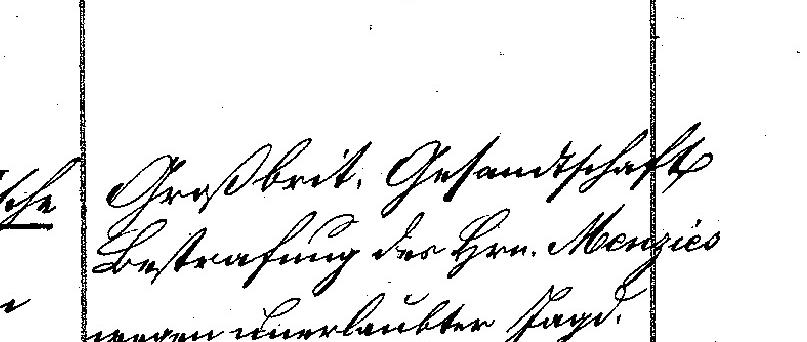 sche Großbrit. Gesandtschaft
Bestrafung des Hrn. Menzies
wegen unerlaubter Jagd.